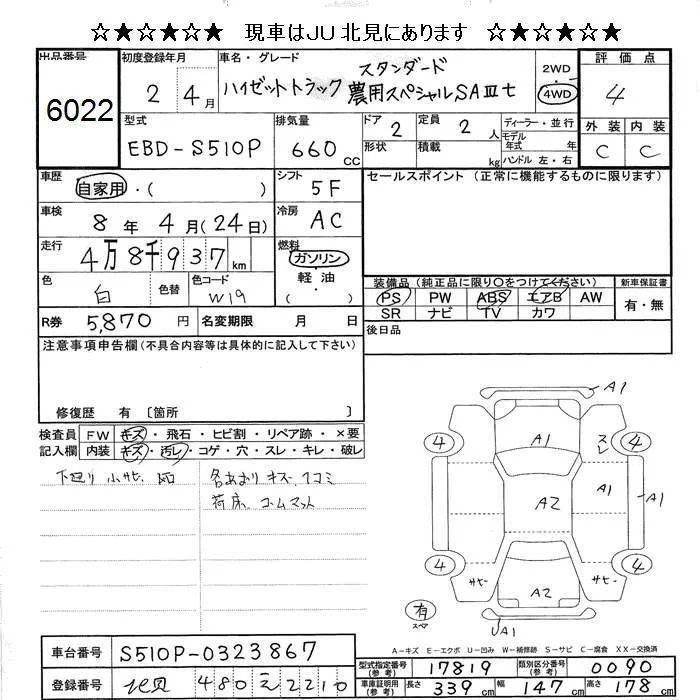 ☆★☆★☆★ 現車はJU北見にあります ☆★☆★☆★
出品番号
6022
初度登録年月
2 4月
車名・グレード
ハイゼットトラック スタンダード
農用スペシャルSAⅢt
2WD
4WD
評価点
4
外装 内装
C C
型式
EBD-S510P
排気量
660 CC
ドア 2
形状
定員 2 人
積載 kg
ディーラー・並行
モデル
年式 年
ハンドル 左・右
車歴
自家用・( )
シフト
5F
車検
8年4月(24日)
冷房
AC
走行
4万8千937km
燃料
ガソリン
軽油
( )
色
白
色替
色コード
W19
R券 5,870円
名変期限 月 日
セールスポイント(正常に機能するものに限ります)
装備品(純正品に限り○をつけてください)
PS PW ABS エアB AW
SR ナビ TV カワ
新車保証書
有・無
後日品
注意事項申告欄(不具合内容等は具体的に記入して下さい)
修復歴 有〔箇所 〕
検査員
記入欄
FW キズ・飛石・ヒビ割・リペア跡・×要
内装 キズ・汚レ・コゲ・穴・スレ・キレ・破レ
下廻り 小サビ
各あおり キズ、凹コミ
荷床、ゴムマット
A1
A1
スレ
4 4
A2
A1
A1
4 4
サビ
A2
サビ
有
スペア
A1
A-キズ E-エクボ U-凹み W-補修跡 S-サビ C-腐食 XX-交換済
車台番号 S510P-0323867
登録番号 北見 480 え 2210
型式指定番号(参考) 17819
類別区分番号(参考) 0090
車庫証明用(参考) 長さ 339cm 幅 147cm 高さ 178cm